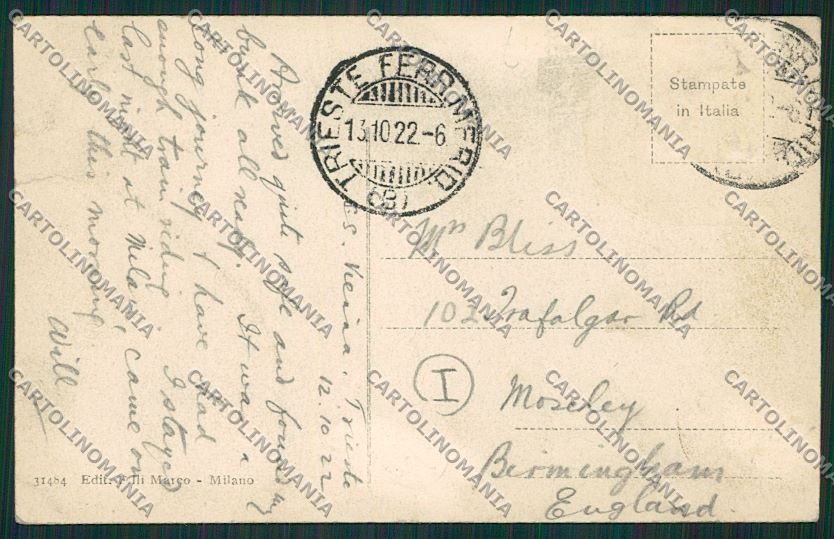 S.S. Vienna. Trieste
12.10.22
Arrived quite safe and found my
bunk all ready. It was a
long journey & have had
enough train riding I stayed
last night at Milan, came on
early this morning
Will
TRIESTE FERR. MERID.
13.10.22.-6
(B)
Stampate
in Italia
Mrs Bliss
102 Trafalgar Rd
I
Moseley
Birmingham
England.
31484 Edit. F.lli Marco - Milano
CARTOLINOMANIA